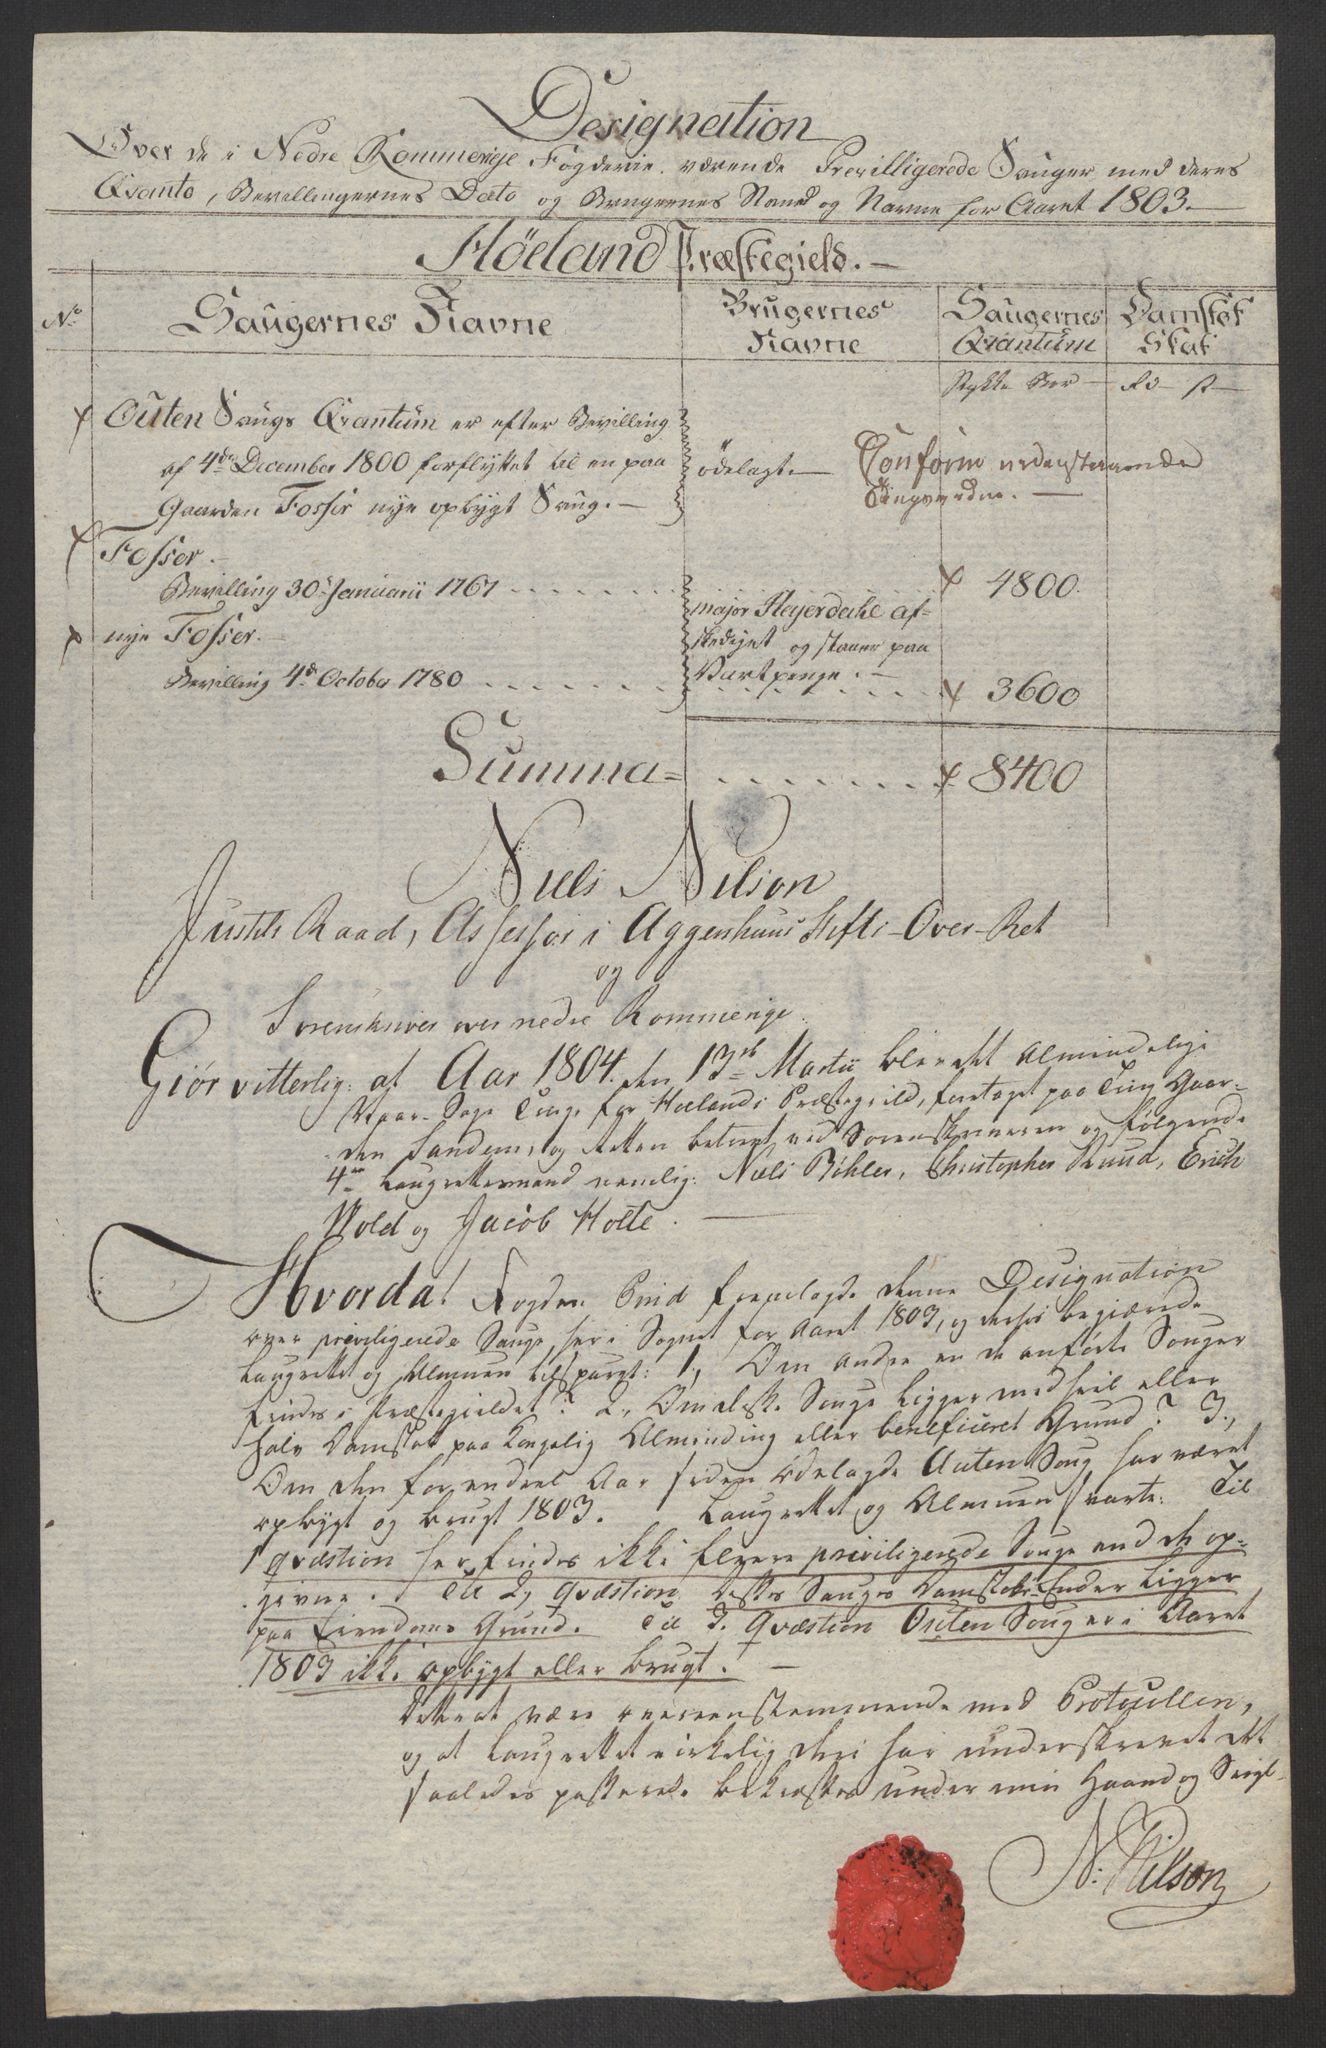 Designation
Over de i Nedre Rommerige Fogderie værende Previlligerede Sauger med deres
Qvanto, Bevillingernes Dato og Brugernes Stand og Navne for Aaret 1803.
Höeland Præstegield.
No
Saugernes Navne
Brugernes Navne
Saugernes Qvantum
Damstok Skat
Stykke Bor Rd s
Outen Saugs Qvantum er efter Bevilling
af 4de December 1800 forflyttet til en paa
Gaarden Fosser nye opbygt Saug.
ödelagt
Conform nedenstaaende
Tingsvidne.
Fosser.
Bevilling 30te Januarii 1767
4800.
nye Fosser.
Bevilling 4de October 1780
major Heyerdahl af-
skediget og staaer paa
Vartpenge.
3600
Summa
8400
Niels Nilson
Justits Raad, Assessor i Aggershuus Stifts-Over-Ret
og
Sorenskriver over nedre Rommerige
Giör vitterlig: at Aar 1804. den 13de Martii blev det Almindelige
Vaar-Sage Ting for Hoelands Præstegield, foretaget paa Ting Gaar-
den Sandem, og Retten betient ved Sorenskriveren og følgende
4re Laugrettesmænd nemlig: Niels Böhler, Christopher Ruud, Erich
Wold og Jacob Holte.
Hvorda! Fogden fremlagde denne Designation
over priviligerede Sauge her i Sognet for Aaret 1803, og derhos begiærede
Laugrettet og Almuen tilspurgt: 1, Om andre en de anførte Sauger
findes i Præstegieldet? 2, Om disse Sauge ligger med heel eller
halv Damstok paa Kongelig Alminding eller beneficeret Grund? 3.,
Om den for endeel Aar siden ödelagde Auten Saug har været
opbygt og brugt 1803. Laugrettet og Almuen svarte: Til
1 qvæstion her findes ikke flere priviligerede Sauge end de op-
givne. Til 2, qvæstion disse Sauges Damstokke Ender ligger
paa Eiendoms Grund. Til 3. qvæstion Outen Saug er i Aaret
1803 ikke opbygt eller brugt.
Dette at være overeenstemmende med Protocollen,
og at Laugrettet virkelig har underskrevet det
saaledes passerede bekræftes under min Haand og Seigl.
N: Nilson